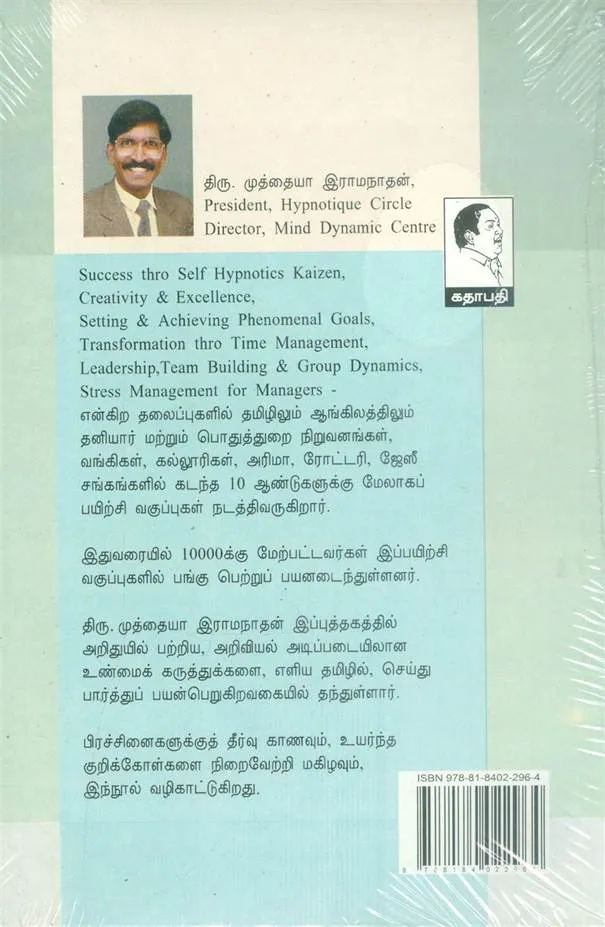 திரு. முத்தையா இராமநாதன்,
President, Hypnotique Circle
Director, Mind Dynamic Centre
கதாபதி
Success thro Self Hypnotics Kaizen,
Creativity & Excellence,
Setting & Achieving Phenomenal Goals,
Transformation thro Time Management,
Leadership,Team Building & Group Dynamics,
Stress Management for Managers -
என்கிற தலைப்புகளில் தமிழிலும் ஆங்கிலத்திலும்
தனியார் மற்றும் பொதுத்துறை நிறுவனங்கள்,
வங்கிகள், கல்லூரிகள், அரிமா, ரோட்டரி, ஜேஸீ
சங்கங்களில் கடந்த 10 ஆண்டுகளுக்கு மேலாகப்
பயிற்சி வகுப்புகள் நடத்திவருகிறார்.
இதுவரையில் 10000க்கு மேற்பட்டவர்கள் இப்பயிற்சி
வகுப்புகளில் பங்கு பெற்றுப் பயனடைந்துள்ளனர்.
திரு. முத்தையா இராமநாதன் இப்புத்தகத்தில்
அறிதுயில் பற்றிய, அறிவியல் அடிப்படையிலான
உண்மைக் கருத்துக்களை, எளிய தமிழில், செய்து
பார்த்துப் பயன்பெறுகிறவகையில் தந்துள்ளார்.
பிரச்சினைகளுக்குத் தீர்வு காணவும், உயர்ந்த
குறிக்கோள்களை நிறைவேற்றி மகிழவும்,
இந்நூல் வழிகாட்டுகிறது.
ISBN 978-81-8402-296-4